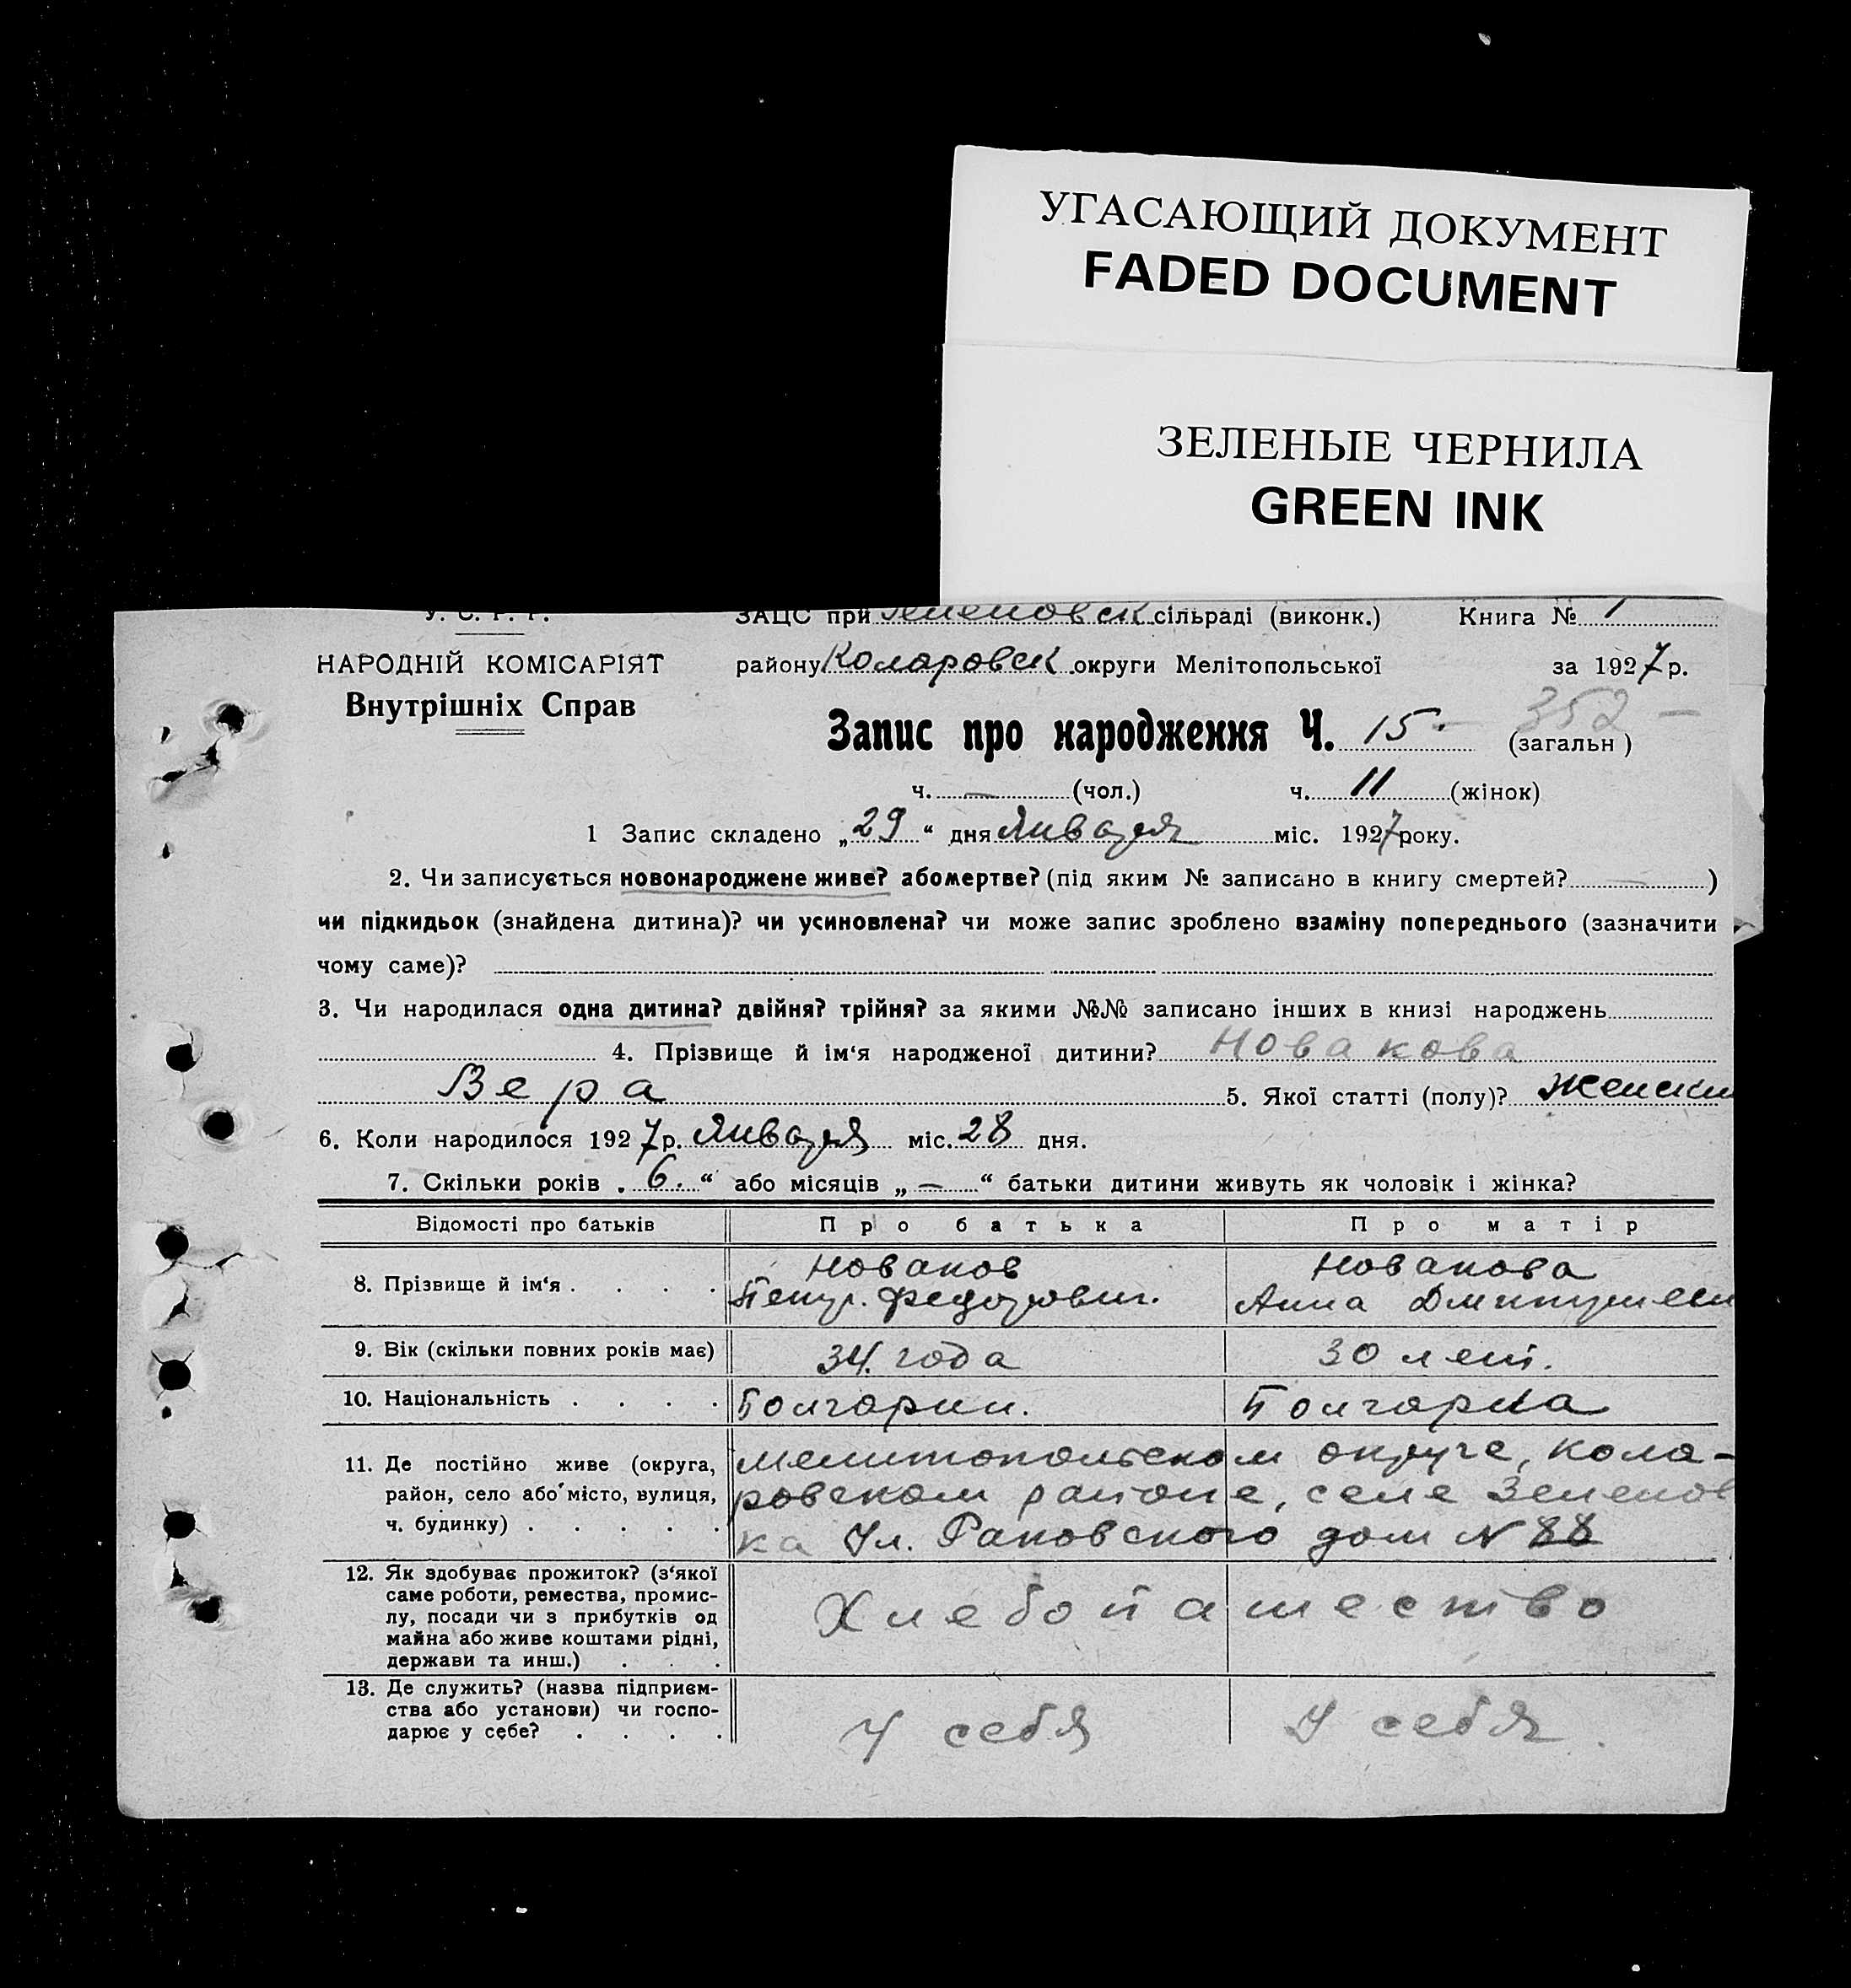 УГАСАЮЩИЙ ДОКУМЕНТ
FADED DOCUMENT
ЗЕЛЕНЫЕ ЧЕРНИЛА
GREEN INK
У. С. Р. Р. ЗАЦС при Зеленовск сільраді (виконк.) Книга № 1
НАРОДНІЙ КОМІСАРІЯТ району Коларовск округи Мелітопольської за 1927 р.
Внутрішніх Справ
Запис про народження Ч. 15 352 (загальн)
ч. — (чол.) ч. 11 (жінок)
1 Запис складено „29“ дня Января міс. 1927 року.
2. Чи записується новонароджене живе? або мертве? (під яким № записано в книгу смертей? — )
чи підкидьок (знайдена дитина)? чи усиновлена? чи може запис зроблено взаміну попереднього (зазначити
чому саме)?
3. Чи народилася одна дитина? двійня? трійня? за якими №№ записано інших в книзі народжень
4. Прізвище й ім‘я народженої дитини? Новакова
Вера 5. Якої статті (полу)? Женски
6. Коли народилося 1927 р. Января міс. 28 дня.
7. Скільки років „6.“ або місяців „—“ батьки дитини живуть як чоловік і жінка?
Відомості про батьків Про батька Про матір
8. Прізвище й ім‘я . . . . Новаков Новакова
Петр. Федорович. Анна Дмитриев
9. Вік (скільки повних років має) 34. года 30 лет.
10. Національність . . . . Болгарин. Болгарка
11. Де постійно живе (округа, Мелитопольском округе, Кола-
район, село або місто, вулиця, ровском районе, селе Зеленов
ч. будинку) . . . . . ка Ул. Раковского дом N 88
12. Як здобуває прожиток? (з‘якої
саме роботи, ремества, промис-
лу, посади чи з прибутків од Хлебопашество
майна або живе коштами рідні,
держави та инш.) . . .
13. Де служить? (назва підприєм-
ства або установи) чи госпо-
дарює у себе? . . . . У себя У себя.